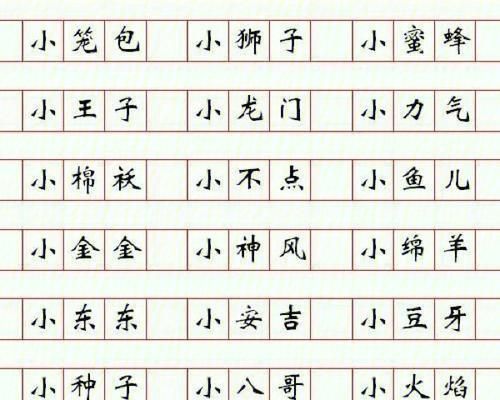 小笼包 小狮子 小蜜蜂
小王子 小龙门 小力气
小棉袄 小不点 小鱼儿
小金金 小神风 小绵羊
小东东 小安吉 小豆牙
小种子 小八哥 小火焰